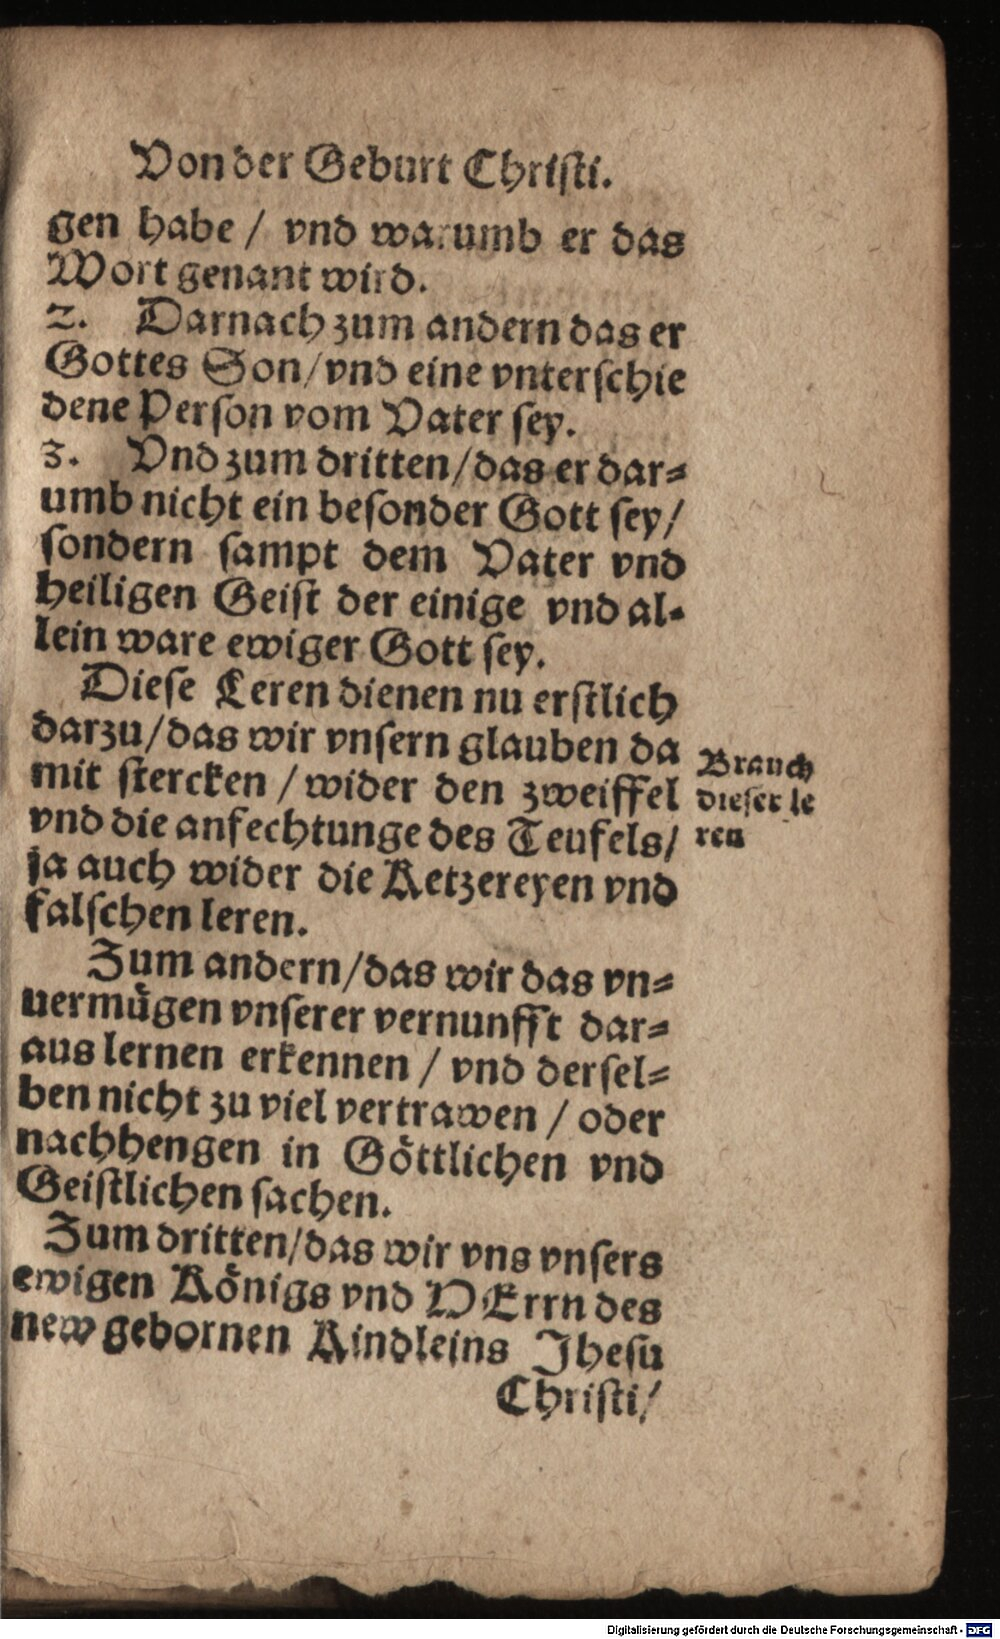 Von der Geburt Chriſti.
gen habe / vnd warumb er das
Wort genant wird.
2. Darnach zum andern das er
Gottes Son/vnd eine vnterſchie
dene Perſon vom Vater ſey.
3. Vnd zum dritten/das er dar⸗
umb nicht ein beſonder Gott ſey/
ſondern ſampt dem Vater vnd
heiligen Geiſt der einige vnd al⸗
lein ware ewiger Gott ſey.
Dieſe Leren dienen nu erſtlich
darzu/das wir vnſern glauben da
mit ſtercken / wider den zweiffel
vnd die anfechtunge des Teufels/
ja auch wider die Ketzereyen vnd
falſchen leren.
Brauch
dieſer le
ren
Zum andern/das wir das vn⸗
uermuͤgen vnſerer vernunfft dar⸗
aus lernen erkennen / vnd derſel⸗
ben nicht zu viel vertrawen / oder
nachhengen in Goͤttlichen vnd
Geiſtlichen ſachen.
Zum dritten/das wir vns vnſers
ewigen Koͤnigs vnd HErrn des
new gebornen Kindleins Jheſu
Chriſti/
Digitalisierung gefördert durch die Deutsche Forschungsgemeinschaft - DFG